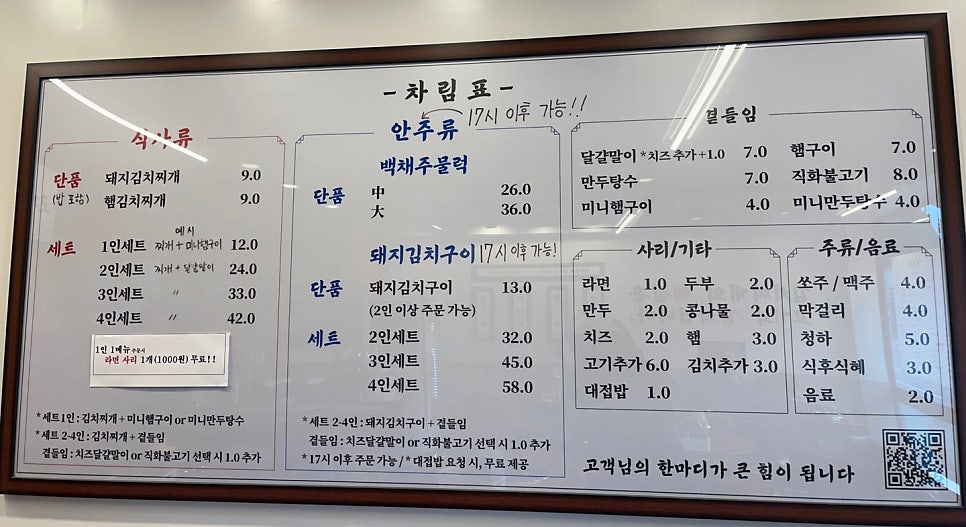 - 차림표 -
17시 이후 가능!!
식사류
단품 돼지김치찌개 9.0
(밥 포함) 햄김치찌개 9.0
예시
세트 1인세트 찌개+미니햄구이 12.0
2인세트 찌개+달걀말이 24.0
3인세트 〃 33.0
4인세트 〃 42.0
1인 1메뉴 주문시
라면 사리 1개(1000원) 무료!!
*세트1인 : 김치찌개 + 미니햄구이 or 미니만두탕수
*세트 2-4인 : 김치찌개 + 곁들임
곁들임 : 치즈달걀말이 or 직화불고기 선택 시 1.0 추가
안주류
백채주물럭
단품 中 26.0
大 36.0
돼지김치구이 17시 이후 가능!
단품 돼지김치구이 13.0
(2인 이상 주문 가능)
세트 2인세트 32.0
3인세트 45.0
4인세트 58.0
*세트 2-4인 : 돼지김치구이 + 곁들임
곁들임 : 치즈달걀말이 or 직화불고기 선택 시 1.0 추가
*17시 이후 주문 가능 / *대접밥 요청 시, 무료 제공
곁들임
달걀말이 *치즈추가+1.0 7.0 햄구이 7.0
만두탕수 7.0 직화불고기 8.0
미니햄구이 4.0 미니만두탕수 4.0
사리/기타
라면 1.0 두부 2.0
만두 2.0 콩나물 2.0
치즈 2.0 햄 3.0
고기추가 6.0 김치추가 3.0
대접밥 1.0
주류/음료
쏘주 / 맥주 4.0
막걸리 4.0
청하 5.0
식후식혜 3.0
음료 2.0
고객님의 한마디가 큰 힘이 됩니다